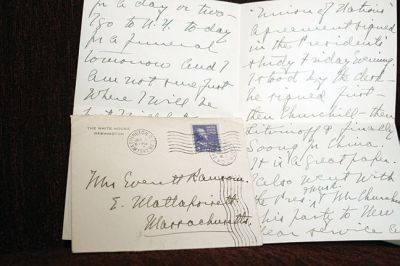 in a day or two -
I go to N.Y. today
for a funeral
tomorrow and I
am not sure just
Where I will be
Union of Nations
Agreement signed
in the President's
study Friday evening.
I stood by the desk -
he signed first -
then Churchill - then
Litvinoff & finally
Soong for China.
It is a great paper.
I also went with
the Pres. & Mr. Churchill
& his party to New
Year service
THE WHITE HOUSE
WASHINGTON
Mrs Everett Ransom.
E. Mattapoisett
Massachusetts.